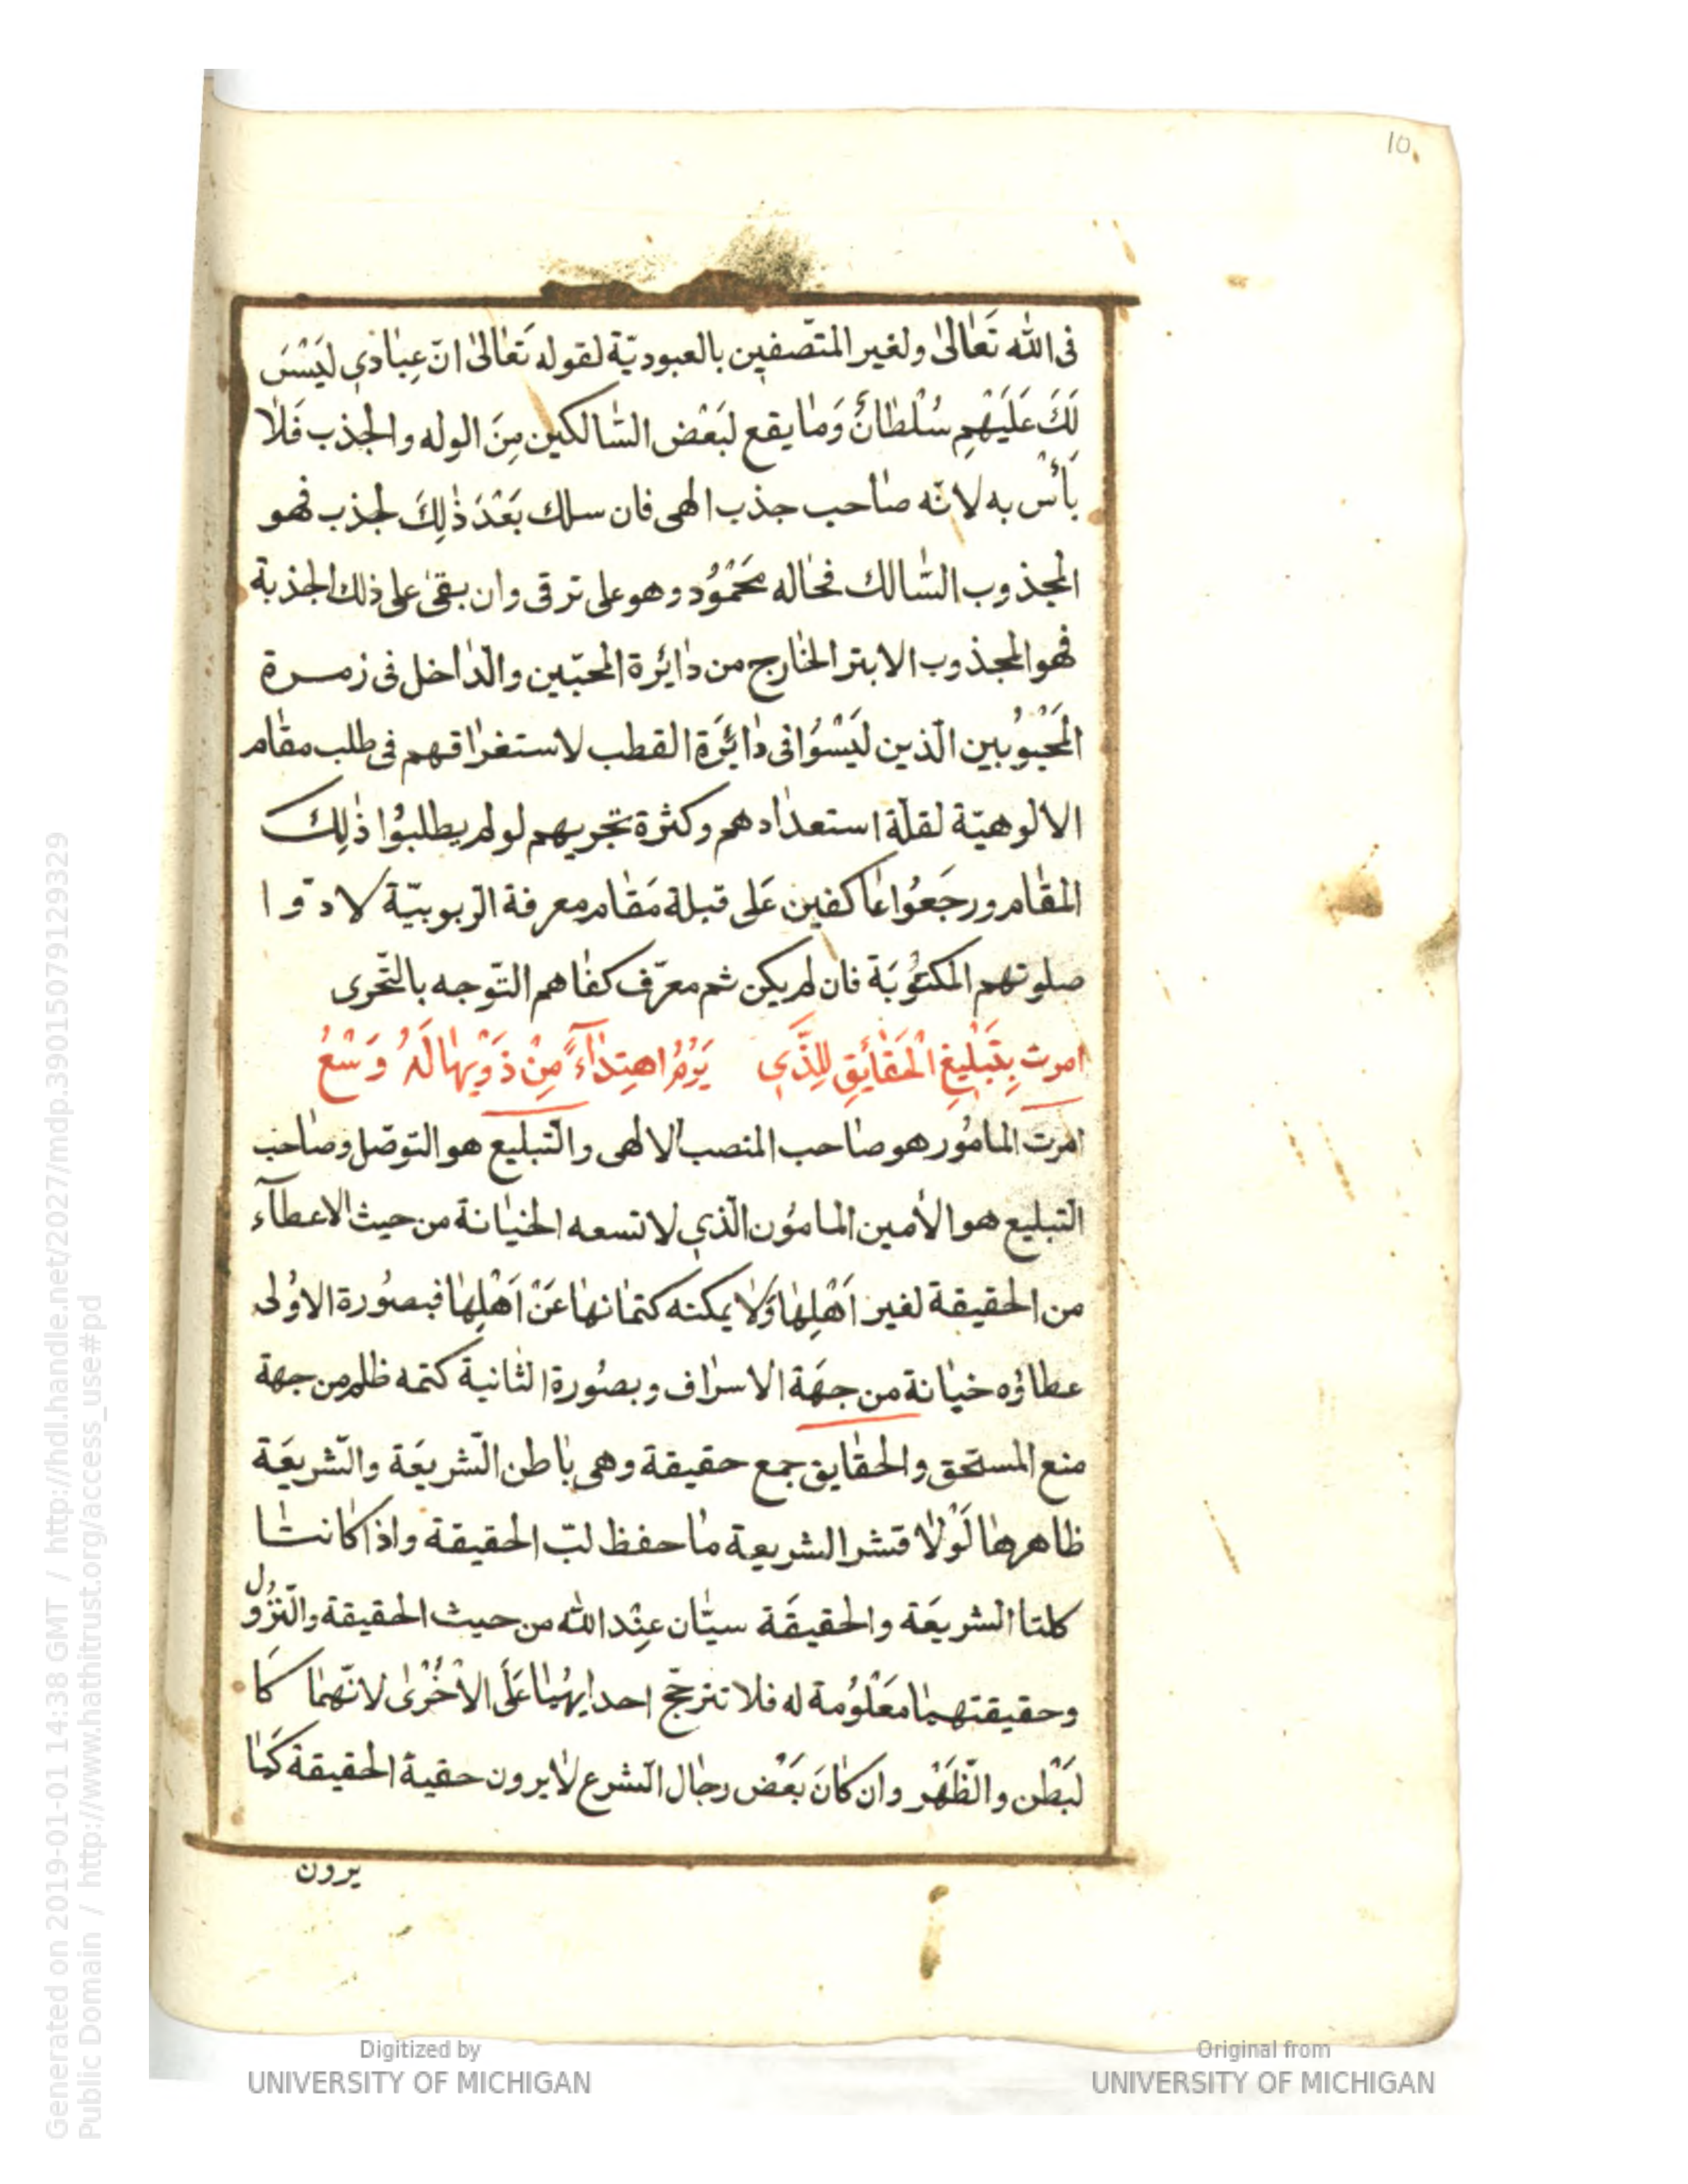 10
فى الله تَعٰالىٰ ولغير المتّصفين بالعبوديّة لقوله تَعٰالىٰ انّ عِبٰادي لَيْسَ
لَكَ عَلَيْهِم سُلْطٰانٌ وَمٰا يقع لبَعْض السّٰالكين مِنَ الوله والجذب فَلاٰ
بَأْسَ به لانّه صٰاحب جذب الهى فان سلك بَعْدَ ذٰلِكَ لجذب فهو
المجذوب السّٰالك فحٰاله مَحْمُوْد وهو على ترقى وان بقىٰ على ذلك الجذبة
فهو المجذوب الابتر الخٰارج من دٰائرة المحبّين والدّٰاخل فى زمرة
المَحْبوُبين الّذين لَيْسُوٰا فى دٰائرَة القطب لاستغرٰاقهم فى طلب مقٰام
الالوهيّة لقلّة استعدٰادهم وكثرة تجريهم لو لم يطلبوُا ذٰلِكَ
المقٰام ورجَعوُا عٰاكفين عَلى قبلة مَقٰام معرفة الرّبوبيّة لادّوا
صلوتهم المكتوُبَة فان لم يكن ثم معرّف كفٰاهم التّوجه بالتّحرى
امرت بِتَبْلِيغِ الْحَقٰائِقِ لِلَّذي يَرُوْمُ اهتِدٰاءً مِنْ ذَوْيهٰا لَهُ وَسْعُ
امرت المامُور هو صٰاحب المنصب الالهى والتّبليغ هو التوصّل وصٰاحب
التّبليغ هو الأمين المامُون الّذي لا تسعه الخيٰانة من حيث الاعطآء
من الحقيقة لغير اَهْلِهٰا وَلاٰ يمكنه كتمٰانهٰا عَنْ اَهْلِهٰا فبصُورة الاوُلى
عطاؤه خيٰانة من جهَة الاسرٰاف وبصُورة الثٰانية كتمه ظلم من جهة
منع المستحق والحقٰايق جمع حقيقة وهى بٰاطن الشّريعَة والشّريعَة
ظاهرهٰا لَوْلاٰ قشر الشريعة مٰا حفظ لبّ الحقيقة واذا كانتٰا
كلتا الشريعَة والحقيقَة سيّٰان عِنْد الله من حيث الحقيقة والنّزُول
وحقيقتهمٰا مَعْلوُمة له فلا تترجّح احدايهُمٰا عَلَى الاُخْرىٰ لانّهمٰا كَا
لبَطْن والظَّهْر وان كٰانَ بَعْض رجٰال الشرع لاٰ يرون حقية الحقيقة كَمٰا
يرون
Generated on 2019-01-01 14:38 GMT / http://hdl.handle.net/2027/mdp.39015079129329
Public Domain / http://www.hathitrust.org/access_use#pd
Digitized by
UNIVERSITY OF MICHIGAN
Original from
UNIVERSITY OF MICHIGAN